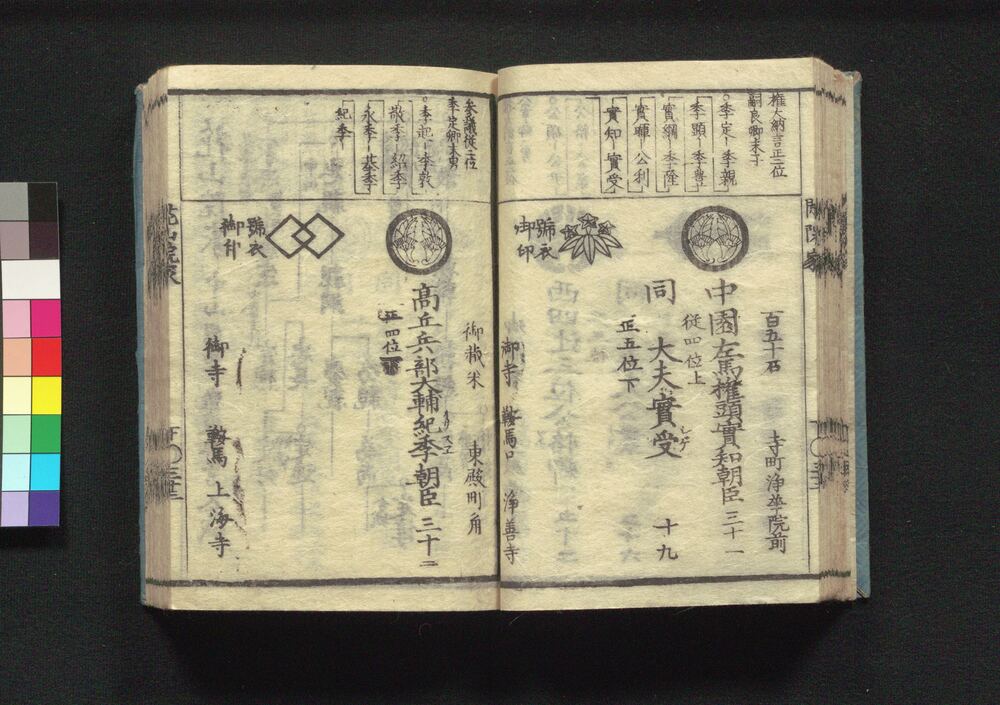 權大納言正二位
嗣良卿末子
○季定―季親
季顯―季豊
實綱―季隆
實暉―公利
實知―實受
百五十石　寺町浄華院前
中園左馬權頭實知朝臣 三十一
從四位上
同 大夫實受 十九
正五位下
號衣
御印
御寺 鞍馬口 浄善寺
參議從二位
季定卿末男
○季起―季敦
敬季―紹季
永季―基季
紀季
御蔵米 東殿町角
高丘兵部大輔紀季朝臣 三十二
正四位下
號衣
御印
御寺 鞍馬 上海寺